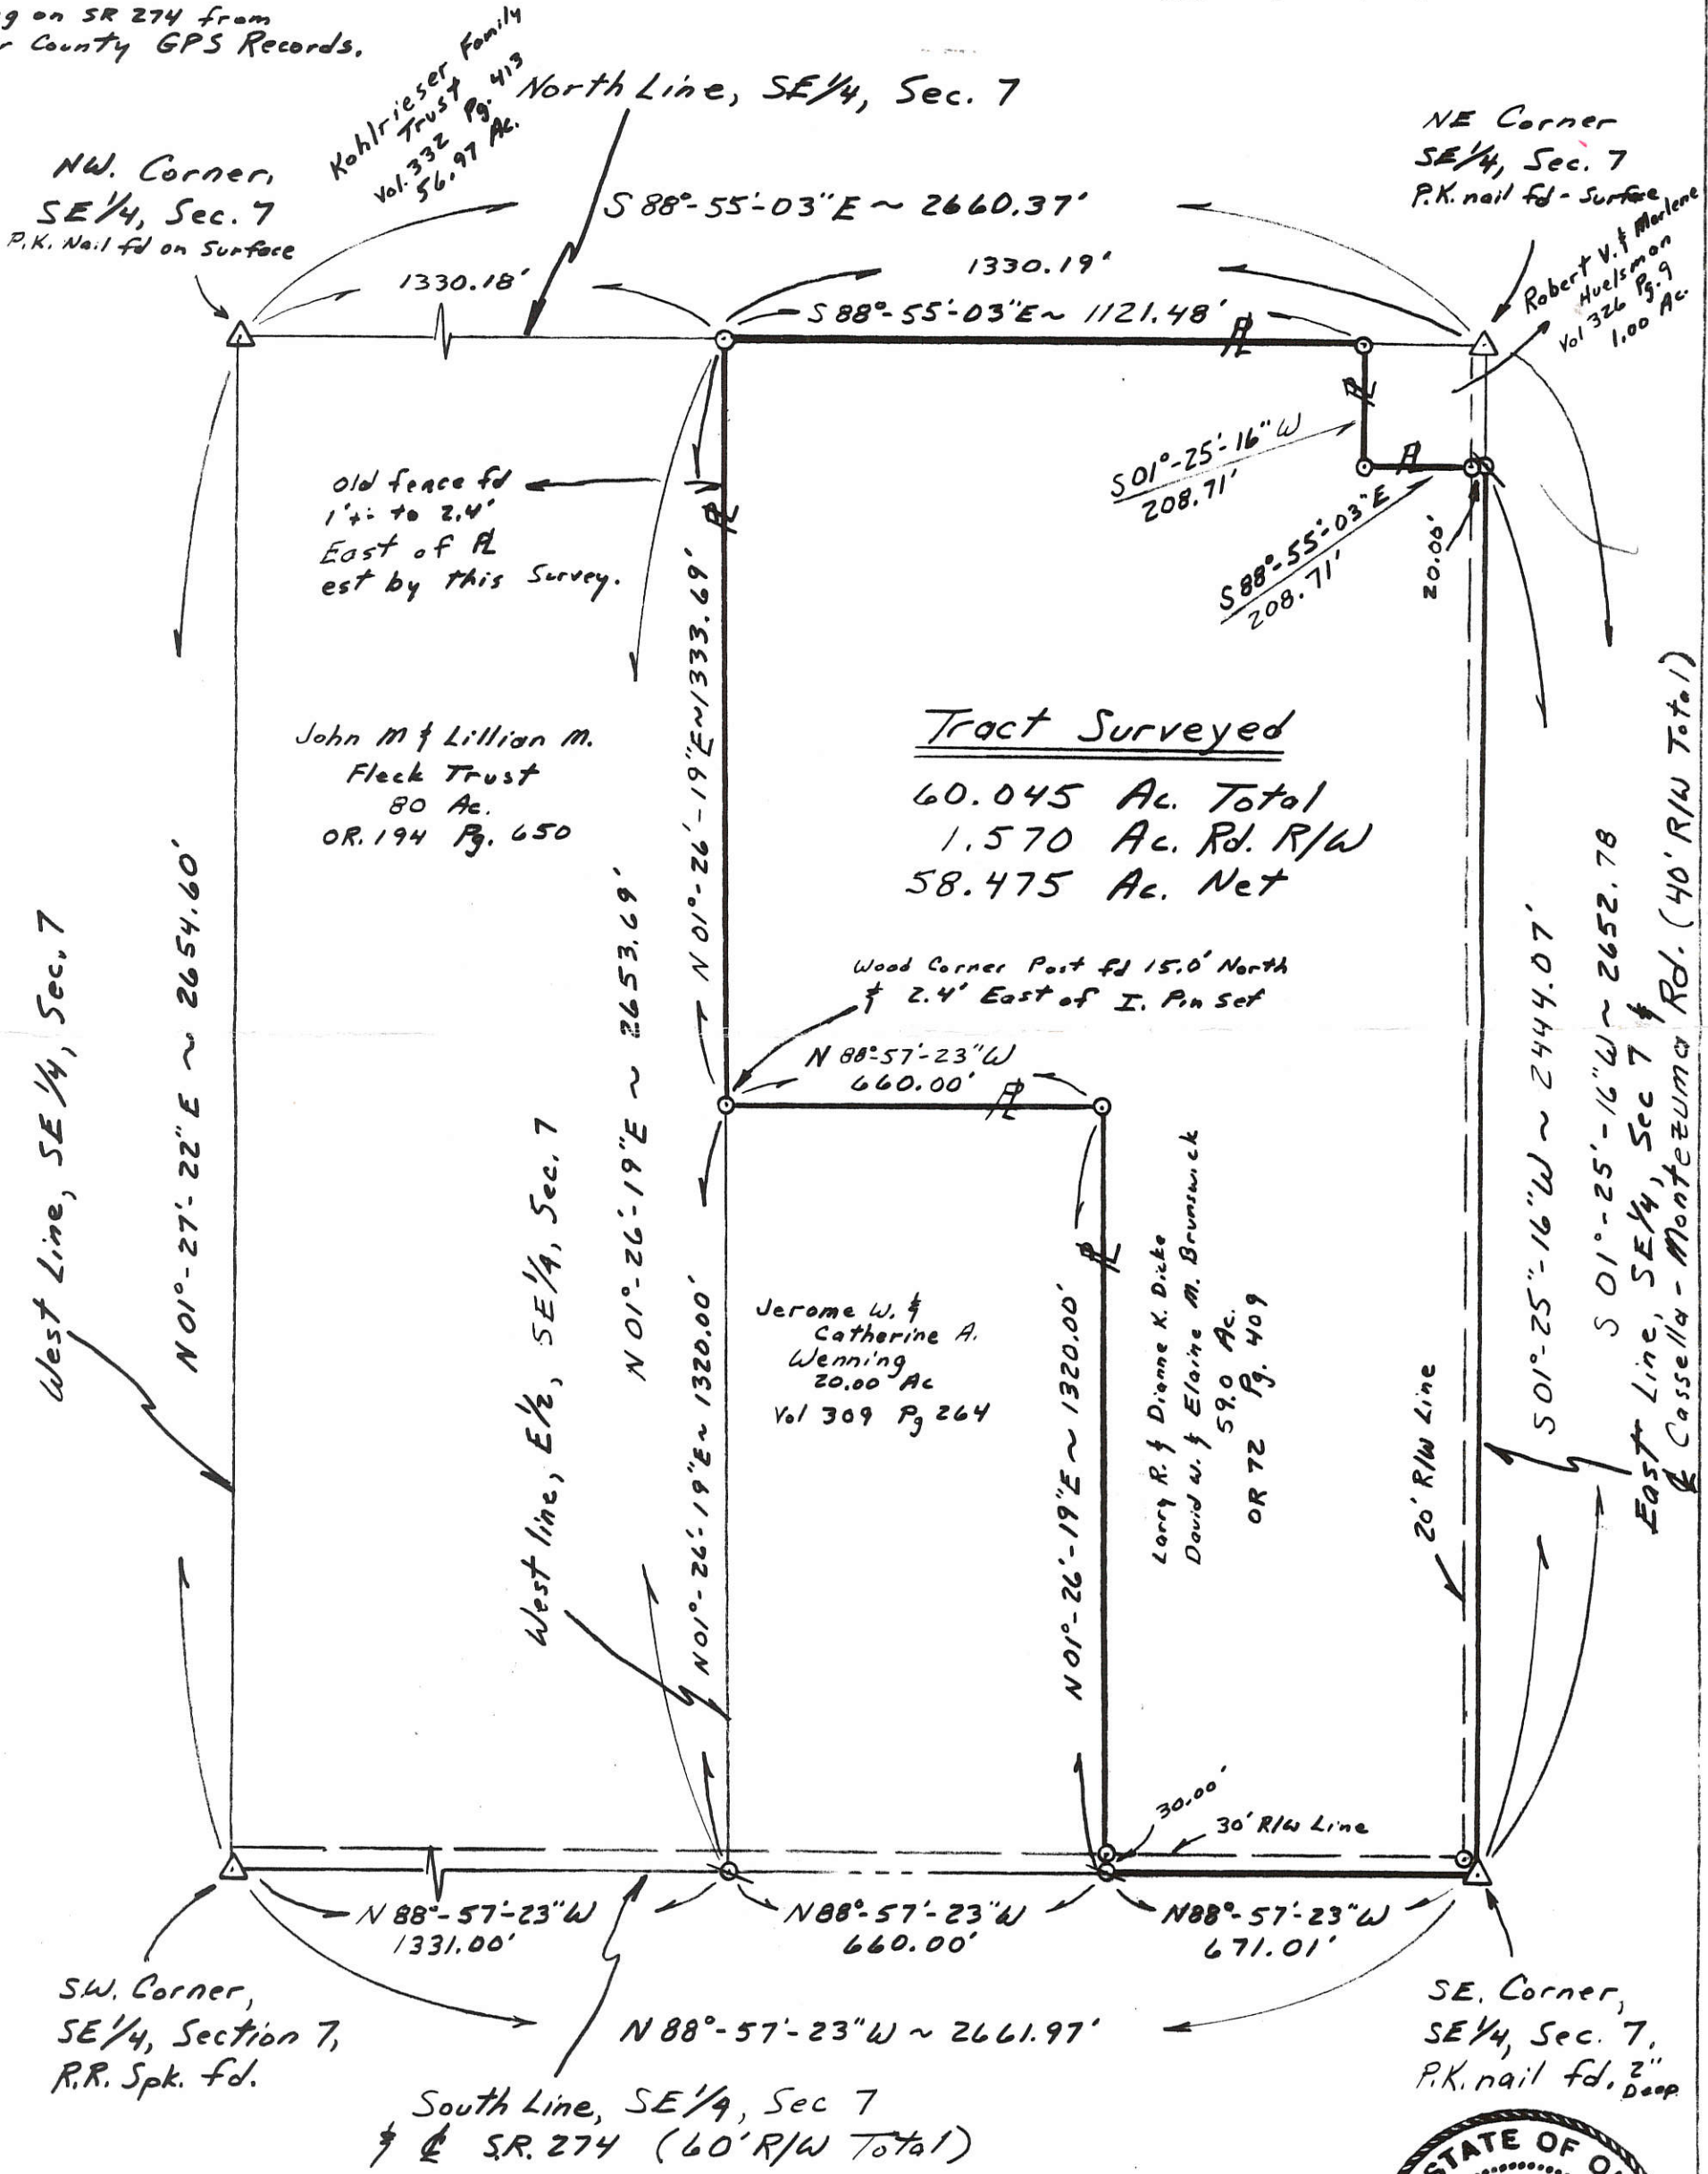 g on SR 274 from
County GPS Records.
Kohlrieser Family
Trust
Vol. 332 Pg. 413
56.97 Ac.
North Line, SE 1/4, Sec. 7
NW. Corner,
SE 1/4, Sec. 7
P.K. Nail fd on Surface
NE Corner
SE 1/4, Sec. 7
P.K. nail fd - Surface
Robert V. & Marlene
Huelsman
Vol 326 Pg. 9
1.00 Ac.
S 88°-55'-03" E ~ 2660.37'
1330.18'
1330.19'
S 88°-55'-03" E ~ 1121.48'
PL
PL
S 01°-25'-16" W
208.71'
PL
S 88°-55'-03" E
208.71'
20.00'
Old fence fd
1'+- to 2.4'
East of PL
est by this Survey.
PL
N 01°-26'-19" E ~ 1333.69'
John M & Lillian M.
Fleck Trust
80 Ac.
OR. 194 Pg. 650
Tract Surveyed
60.045 Ac. Total
1.570 Ac. Rd. R/W
58.475 Ac. Net
Wood Corner Post fd 15.0' North
& 2.4' East of I. Pin Set
N 88°-57'-23" W
660.00'
PL
West Line, SE 1/4, Sec. 7
N 01°-27'-22" E ~ 2654.60'
West line, E 1/2, SE 1/4, Sec. 7
N 01°-26'-19" E ~ 2653.69'
N 01°-26'-19" E ~ 1320.00'
Jerome W. &
Catherine A.
Wenning
20.00 Ac
Vol 309 Pg 264
PL
N 01°-26'-19" E ~ 1320.00'
Larry R. & Dianne K. Dicke
David W. & Elaine M. Brunswick
59.0 Ac.
OR 72 Pg. 409
20' R/W Line
S 01°-25"-16" W ~ 2444.07'
S 01°-25'-16" W ~ 2652.78
East Line, SE 1/4, Sec 7 &
℄ Cassella - Montezuma Rd. (40' R/W Total)
30.00'
30' R/W Line
N 88°-57'-23" W
1331.00'
N 88°-57'-23" W
660.00'
N 88°-57'-23" W
671.01'
S.W. Corner,
SE 1/4, Section 7,
R.R. Spk. fd.
N 88°-57'-23" W ~ 2661.97'
SE. Corner,
SE 1/4, Sec. 7,
P.K. nail fd. 2" Deep
South Line, SE 1/4, Sec 7
& ℄ S.R. 274 (60' R/W Total)
STATE OF